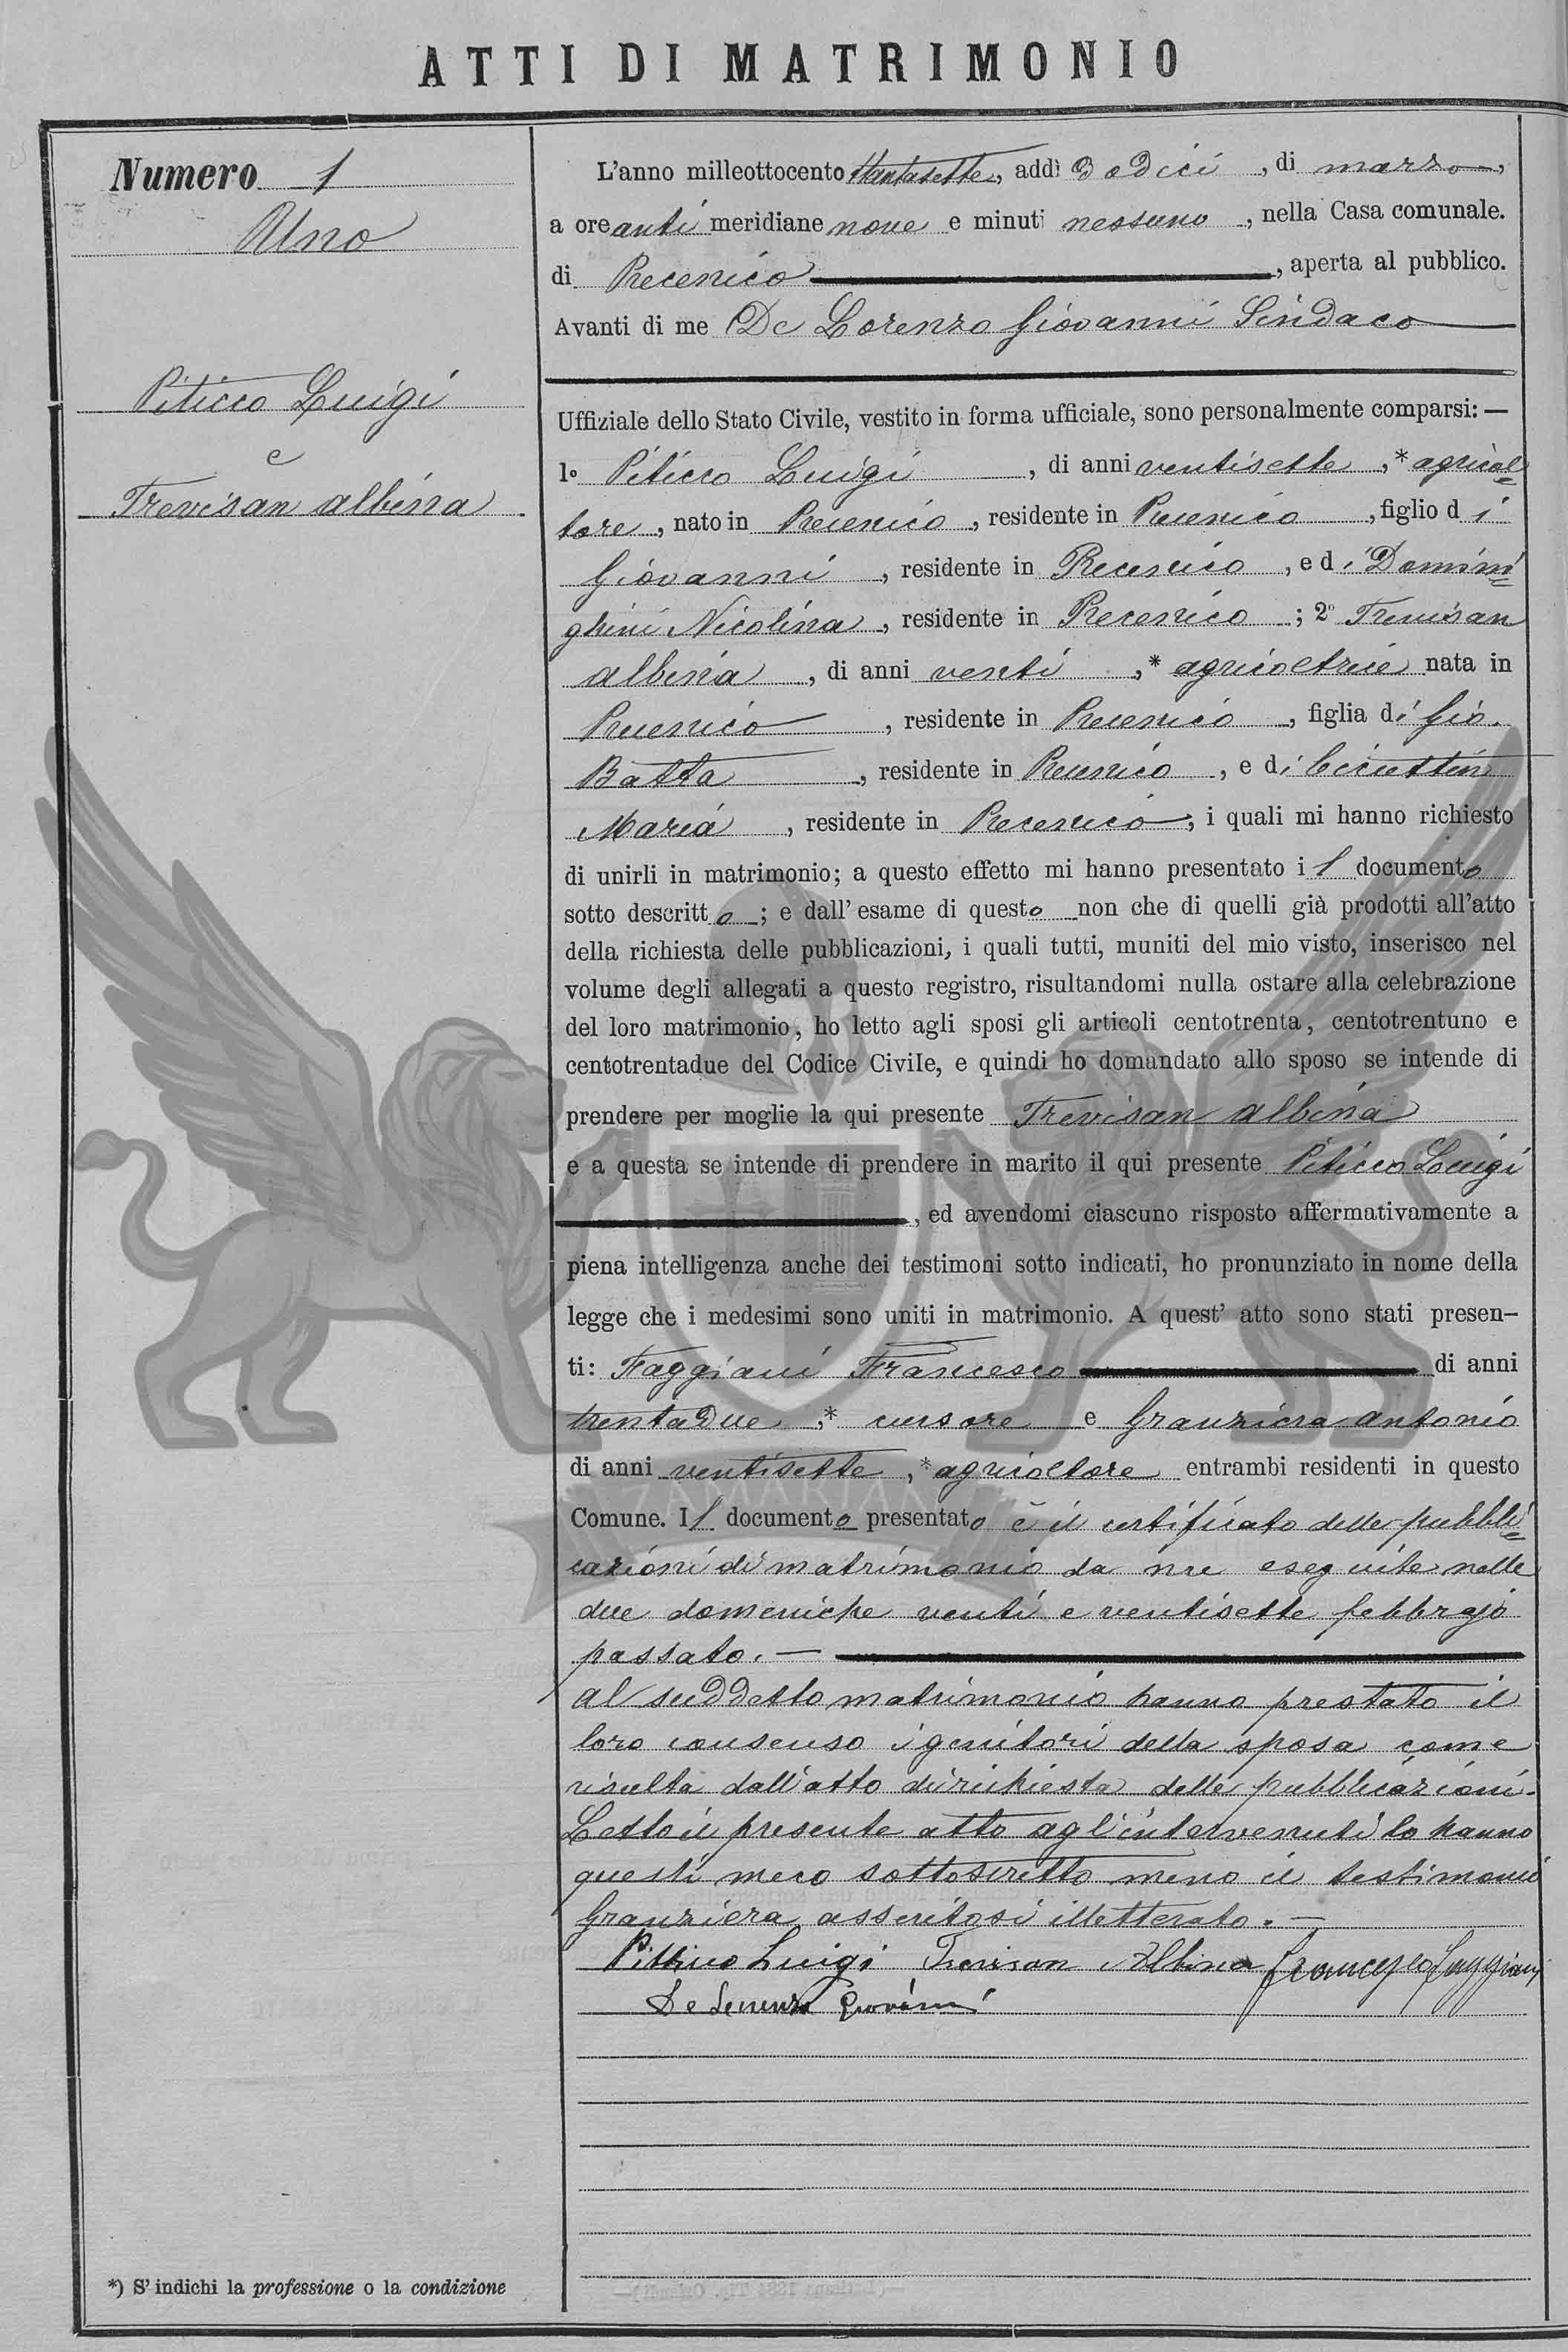 ATTI DI MATRIMONIO
Numero 1
Uno
Piticco Luigi
e
Trevisan Albina
L'anno milleottocento ottantasette, addì dodici, di marzo,
a ore anti meridiane nove e minuti nessuno, nella Casa comunale.
di Precenico, aperta al pubblico.
Avanti di me De Lorenzo Giovanni Sindaco
Uffiziale dello Stato Civile, vestito in forma ufficiale, sono personalmente comparsi: —
1º Piticco Luigi, di anni ventisette, * agricol=
tore, nato in Precenico, residente in Precenico, figlio di
Giovanni, residente in Precenico, e di Domini=
ghini Nicolina, residente in Precenico; 2º Trevisan
Albina, di anni venti, * agricoltrice nata in
Precenico, residente in Precenico, figlia di Gio.
Batta, residente in Precenico, e di
Maria, residente in Precenico, i quali mi hanno richiesto
di unirli in matrimonio; a questo effetto mi hanno presentato il documento
sotto descritto; e dall'esame di questo non che di quelli già prodotti all'atto
della richiesta delle pubblicazioni, i quali tutti, muniti del mio visto, inserisco nel
volume degli allegati a questo registro, risultandomi nulla ostare alla celebrazione
del loro matrimonio, ho letto agli sposi gli articoli centotrenta, centotrentuno e
centotrentadue del Codice Civile, e quindi ho domandato allo sposo se intende di
prendere per moglie la qui presente Trevisan Albina
e a questa se intende di prendere in marito il qui presente Piticco Luigi
, ed avendomi ciascuno risposto affermativamente a
piena intelligenza anche dei testimoni sotto indicati, ho pronunziato in nome della
legge che i medesimi sono uniti in matrimonio. A quest' atto sono stati presen-
ti: Faggiani Francesco di anni
trentadue, * cursore e Granziera Antonio
di anni ventisette, * agricoltore entrambi residenti in questo
Comune. Il documento presentato è il certificato delle pubbli=
cazioni di matrimonio da me eseguite nelle
due domeniche venti e ventisette febbrajo
passato. —
Al suddetto matrimonio hanno prestato il
loro consenso i genitori della sposa come
risulta dall'atto di richiesta delle pubblicazioni.
Letto il presente atto agl'intervenuti lo hanno
questi meco sottoscritto meno il testimonio
Granziera assertosi illetterato. —
Pitticco Luigi Trevisan Albina Francesco Faggiani
De Lorenzo Giovanni
*) S' indichi la professione o la condizione